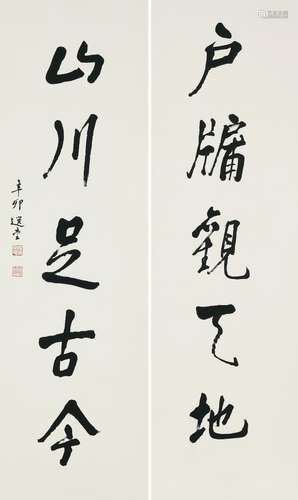 户牖觀天地
山川足古今
辛卯 選堂